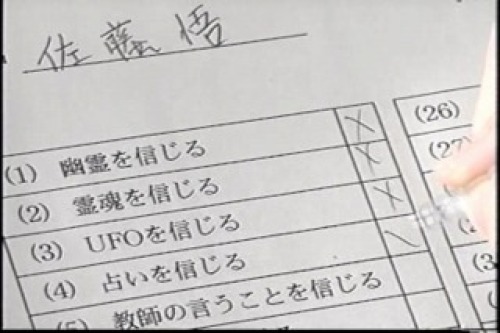 佐藤 悟
(1) 幽霊を信じる X
(2) 霊魂を信じる X
(3) UFOを信じる X
(4) 占いを信じる
(5) 教師の言うことを信じる
(26)
(27)